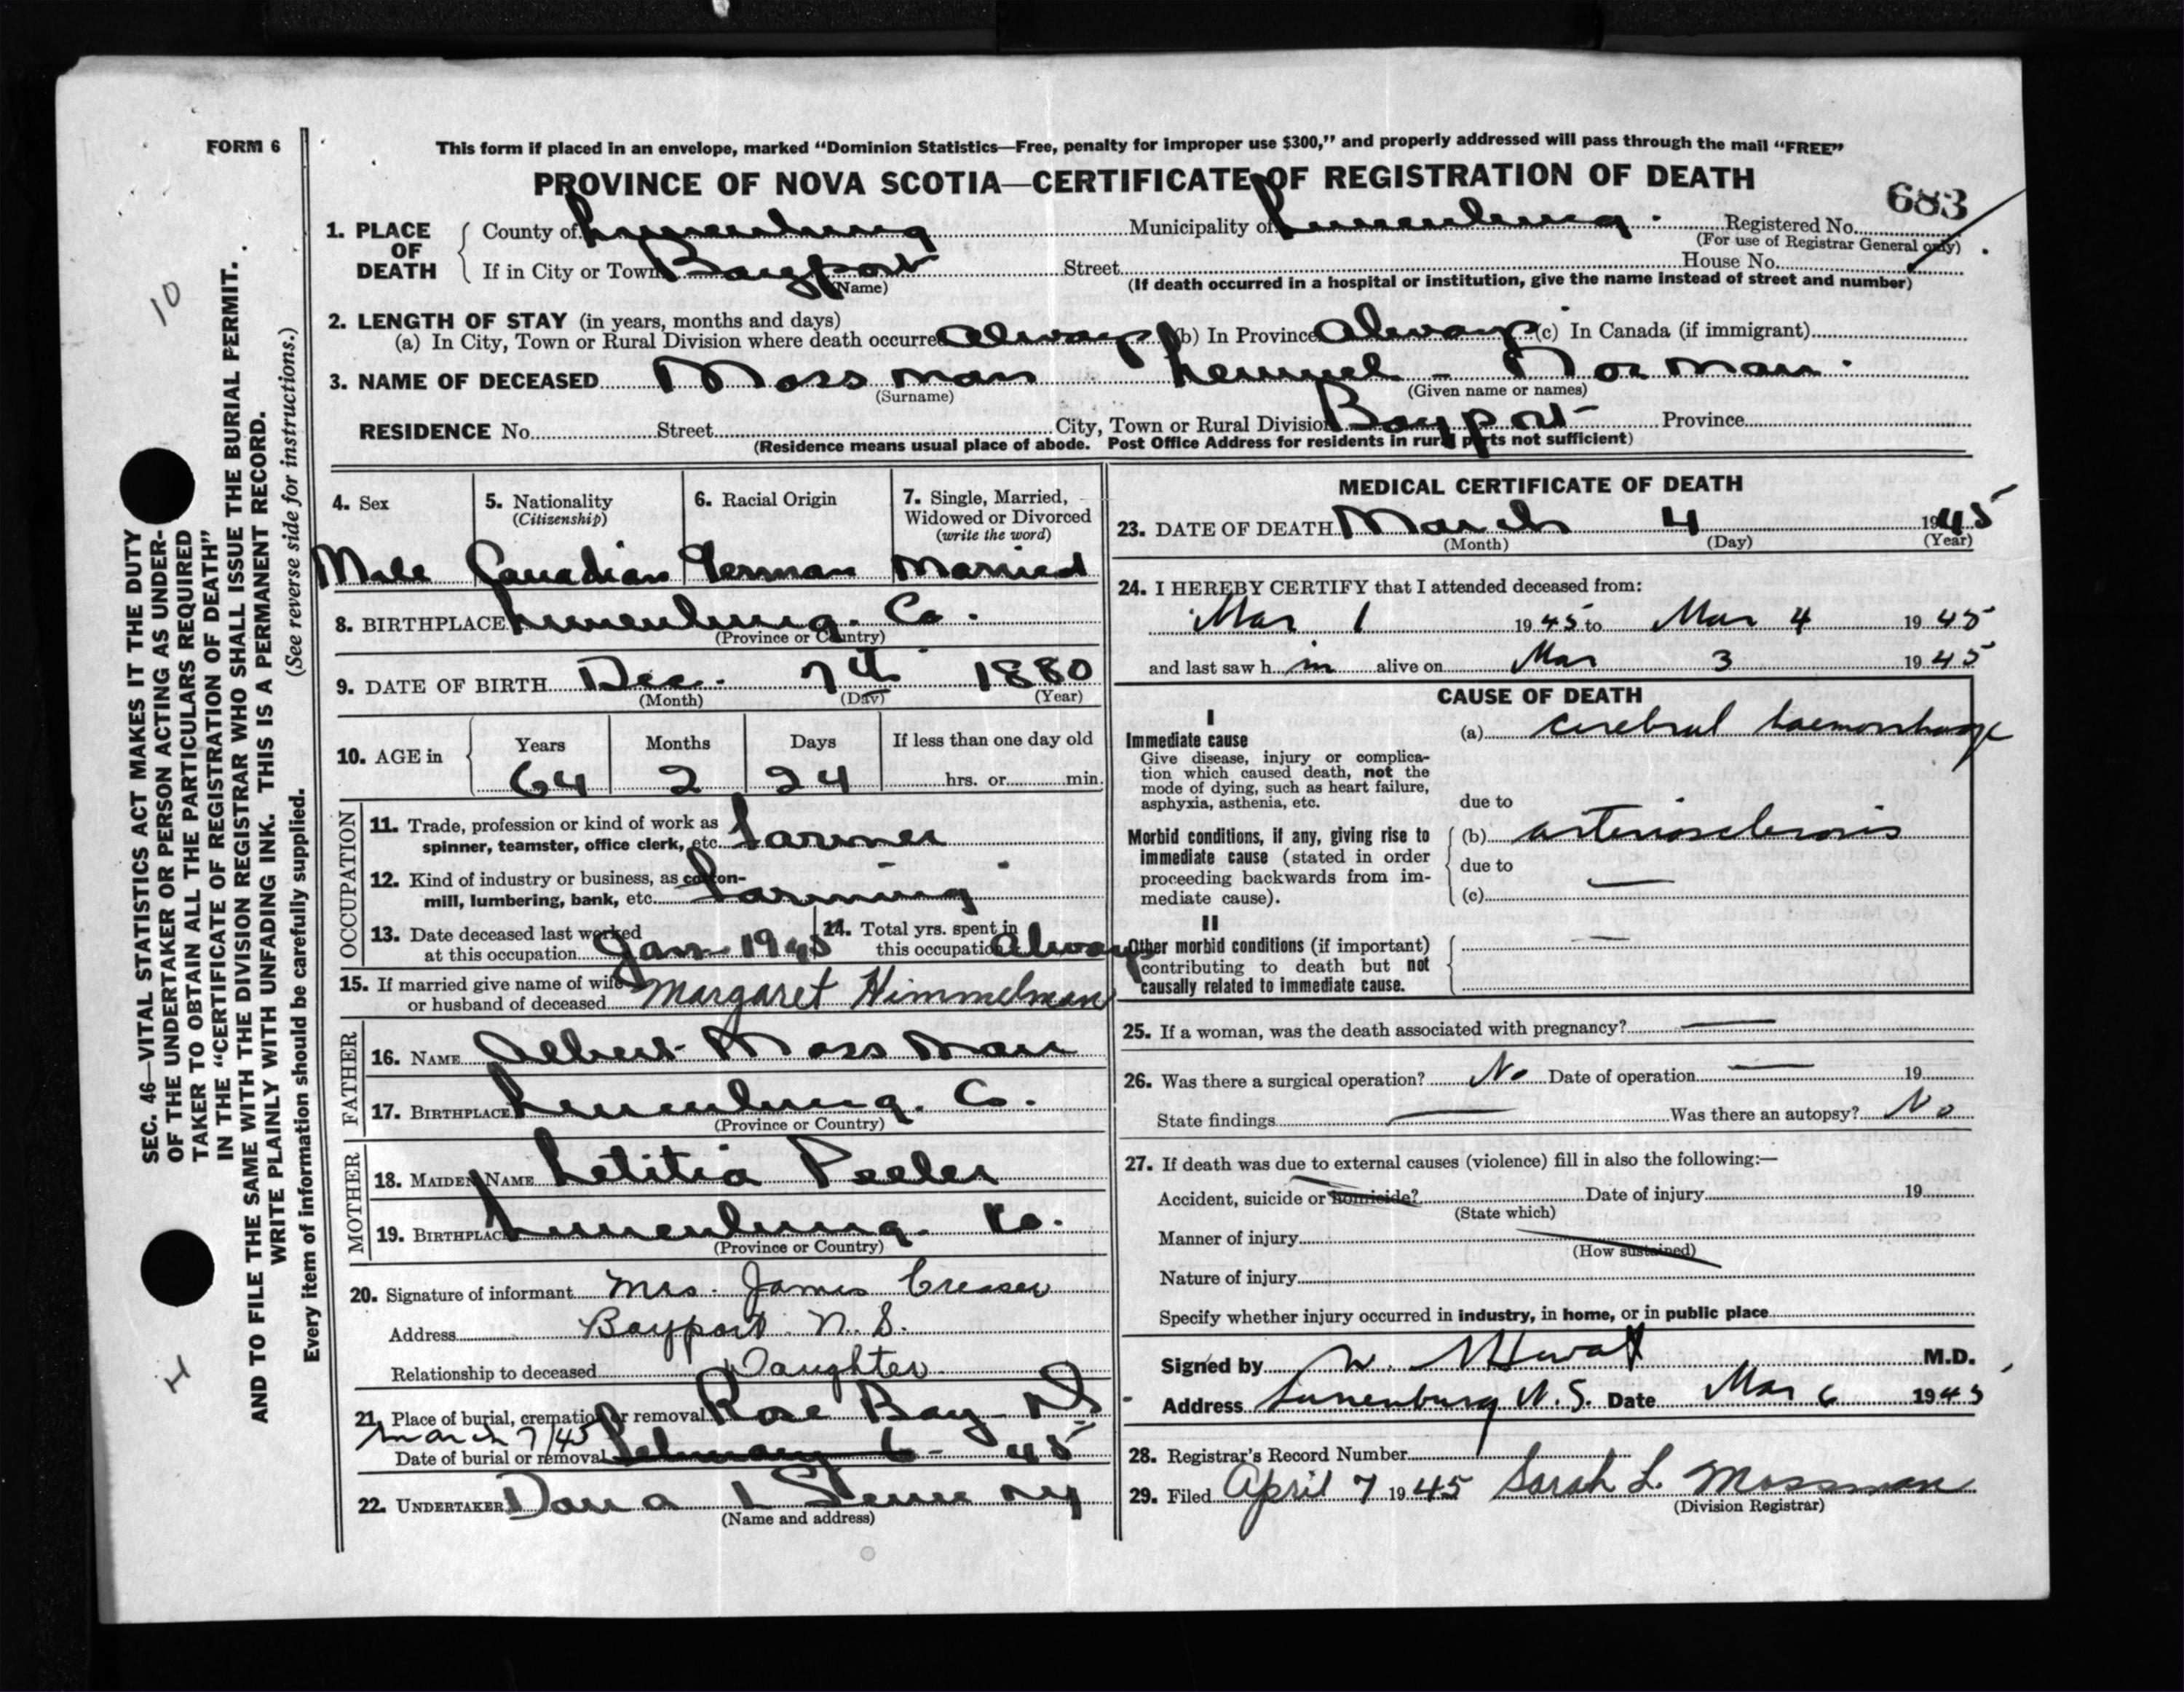 FORM 6
This form if placed in an envelope, marked “Dominion Statistics—Free, penalty for improper use $300,” and properly addressed will pass through the mail “FREE”
PROVINCE OF NOVA SCOTIA—CERTIFICATE OF REGISTRATION OF DEATH
683
1. PLACE OF DEATH
County of Lunenburg Municipality of Lunenburg. Registered No.
(For use of Registrar General only)
If in City or Town Bayport Street House No.
(Name) (If death occurred in a hospital or institution, give the name instead of street and number)
2. LENGTH OF STAY (in years, months and days)
(a) In City, Town or Rural Division where death occurred always (b) In Province Always (c) In Canada (if immigrant)
3. NAME OF DECEASED Mossman Lemuel - Norman.
(Surname) (Given name or names)
RESIDENCE No. Street City, Town or Rural Division Bayport Province
(Residence means usual place of abode. Post Office Address for residents in rural parts not sufficient)
4. Sex 5. Nationality (Citizenship) 6. Racial Origin 7. Single, Married, Widowed or Divorced (write the word)
Male Canadian German Married
8. BIRTHPLACE Lunenburg. Co.
(Province or Country)
9. DATE OF BIRTH Dec. 7th 1880
(Month) (Day) (Year)
10. AGE in Years Months Days If less than one day old
64 2 24 hrs. or min.
OCCUPATION
11. Trade, profession or kind of work as spinner, teamster, office clerk, etc. Farmer
12. Kind of industry or business, as cotton-mill, lumbering, bank, etc. Farming
13. Date deceased last worked at this occupation Jan 1945 14. Total yrs. spent in this occupation Always
15. If married give name of wife or husband of deceased Margaret Himmelman
FATHER
16. NAME Albert Mossman
17. BIRTHPLACE Lunenburg. Co.
(Province or Country)
MOTHER
18. MAIDEN NAME Letitia Peeler
19. BIRTHPLACE Lunenburg. Co.
(Province or Country)
20. Signature of informant Mrs. James Creaser
Address Bayport N.S.
Relationship to deceased Daughter
21. Place of burial, cremation or removal Rose Bay NS
March 7/45
Date of burial or removal February 6 - 45
22. UNDERTAKER
(Name and address)
MEDICAL CERTIFICATE OF DEATH
23. DATE OF DEATH March 4 1945
(Month) (Day) (Year)
24. I HEREBY CERTIFY that I attended deceased from:
Mar 1 1945 to Mar 4 1945
and last saw him alive on Mar 3 1945
CAUSE OF DEATH
I
Immediate cause
Give disease, injury or complication which caused death, not the mode of dying, such as heart failure, asphyxia, asthenia, etc.
(a) cerebral haemorrhage
due to
Morbid conditions, if any, giving rise to immediate cause (stated in order proceeding backwards from immediate cause).
(b) arteriosclerosis
due to
(c) —
II
Other morbid conditions (if important) contributing to death but not causally related to immediate cause.
—
25. If a woman, was the death associated with pregnancy? —
26. Was there a surgical operation? No Date of operation — 19
State findings — Was there an autopsy? No
27. If death was due to external causes (violence) fill in also the following:—
Accident, suicide or homicide? Date of injury 19
(State which)
Manner of injury
(How sustained)
Nature of injury
Specify whether injury occurred in industry, in home, or in public place
Signed by M.D.
Address Lunenburg N.S. Date Mar 6 1945
28. Registrar's Record Number
29. Filed April 7 1945 Sarah L. Mossman
(Division Registrar)
SEC. 46—VITAL STATISTICS ACT MAKES IT THE DUTY
OF THE UNDERTAKER OR PERSON ACTING AS UNDER-
TAKER TO OBTAIN ALL THE PARTICULARS REQUIRED
IN THE “CERTIFICATE OF REGISTRATION OF DEATH”
AND TO FILE THE SAME WITH THE DIVISION REGISTRAR WHO SHALL ISSUE THE BURIAL PERMIT.
WRITE PLAINLY WITH UNFADING INK. THIS IS A PERMANENT RECORD.
Every item of information should be carefully supplied. (See reverse side for instructions.)
10
H